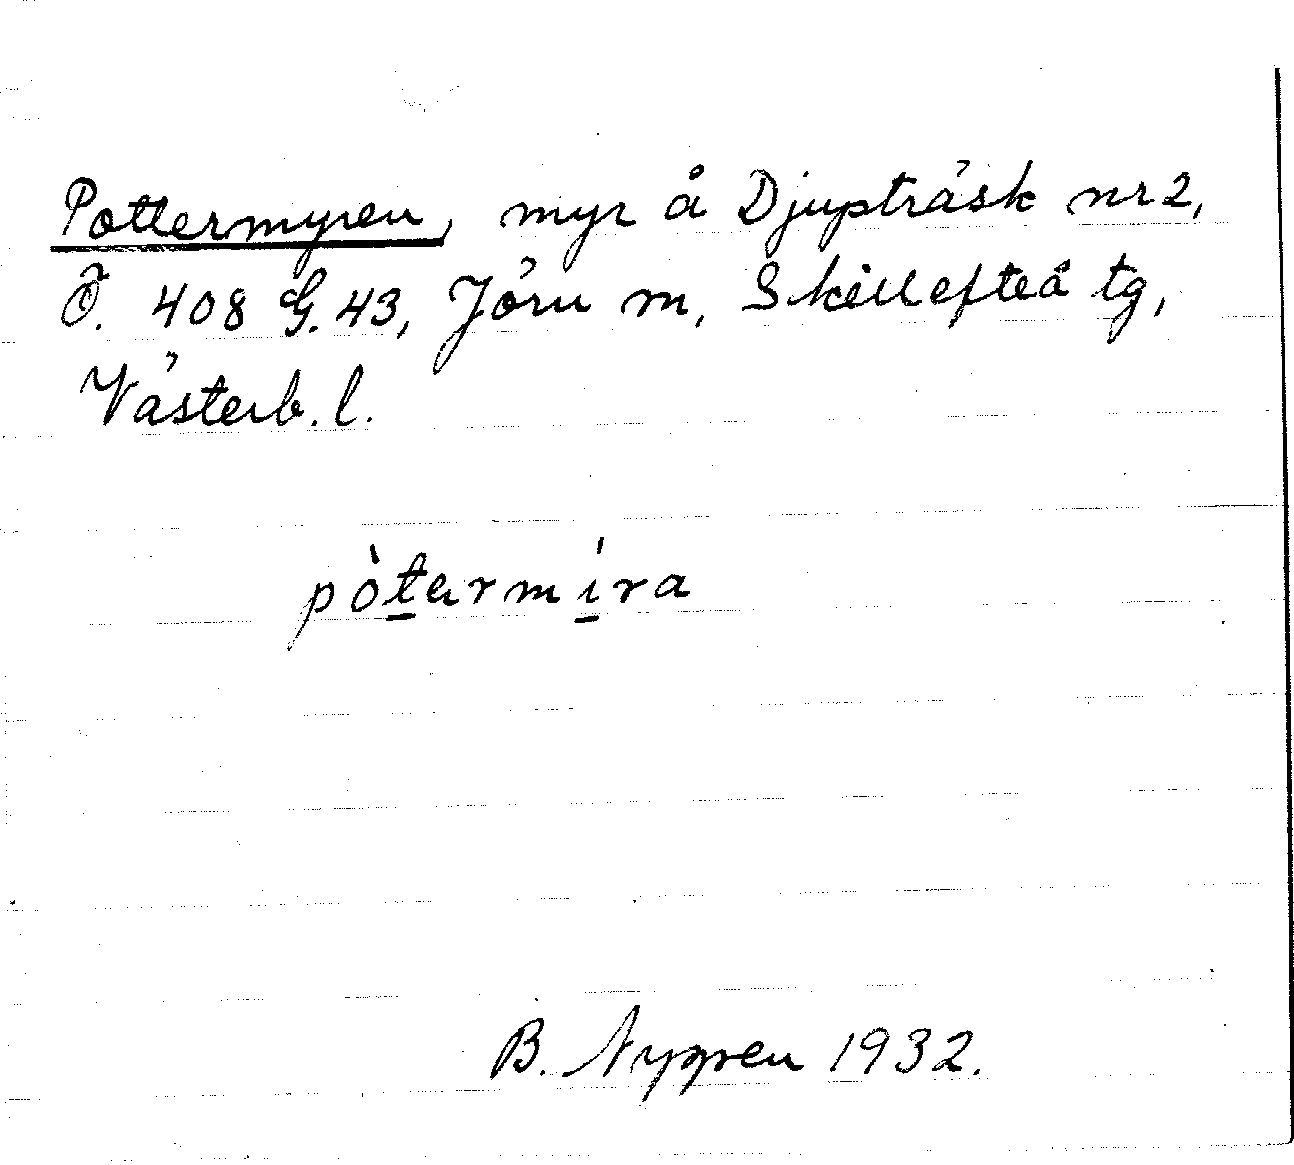 Pottermyren, myr å Djupträsk nr 2,
Ö. 408 G. 43, Jörn m, Skellefteå tg,
Västerb. l.
pòtarmíra
B. Nygren 1932.